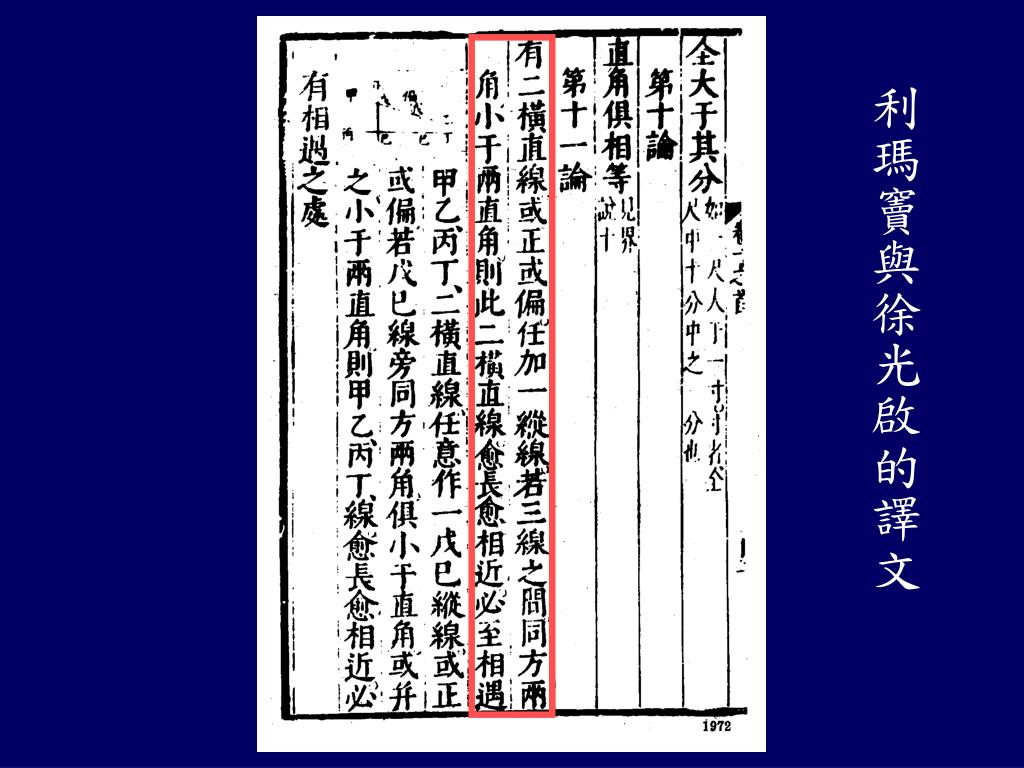 利瑪竇與徐光啟的譯文
全大于其分
第十論
直角俱相等
見界
說十
第十一論
有二橫直線或正或偏任加一縱線若三線之間同方兩
角小于兩直角則此二橫直線愈長愈相近必至相遇
甲乙丙丁二橫直線任意作一戊已縱線或正
或偏若戊已線旁同方兩角俱小于直角或并
之小于兩直角則甲乙丙丁線愈長愈相近必
有相遇之處
甲
丙
丁
1972